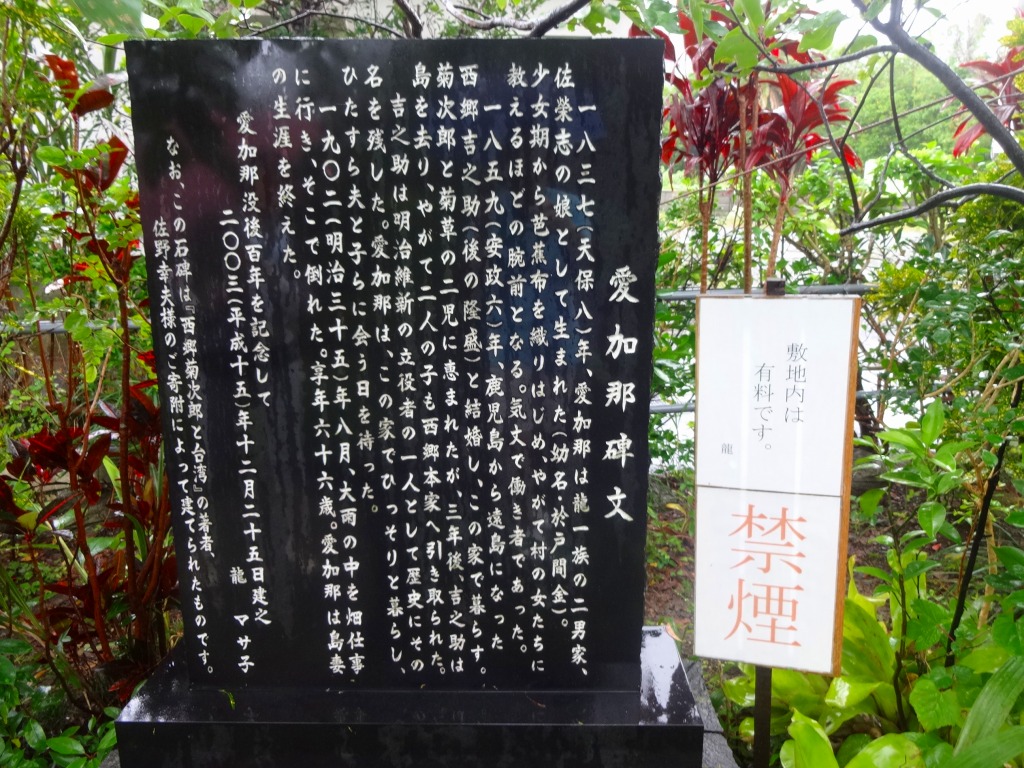 愛加那碑文
一八三七(天保八)年、愛加那は龍一族の二男家、
佐榮志の娘として生まれた(幼名・於戸間金)。
少女期から芭蕉布を織りはじめ、やがて村の女たちに
教えるほどの腕前となる。気丈で働き者であった。
一八五九(安政六)年、鹿児島から遠島になった
西郷吉之助(後の隆盛)と結婚し、この家で暮らす。
菊次郎と菊草の二児に恵まれたが、三年後、吉之助は
島を去り、やがて二人の子も西郷本家へ引き取られた。
吉之助は明治維新の立役者の一人として歴史にその
名を残した。愛加那は、この家でひっそりと暮らし、
ひたすら夫と子らに会う日を待った。
一九〇二(明治三十五)年八月、大雨の中を畑仕事
に行き、そこで倒れた。享年六十六歳。愛加那は島妻
の生涯を終えた。
愛加那没後百年を記念して
二〇〇三(平成十五)年十二月二十五日建之
龍 マサ子
なお、この石碑は『西郷菊次郎と台湾』の著者、
佐野幸夫様のご寄附によって建てられたものです。
敷地内は
有料です。
龍
禁煙